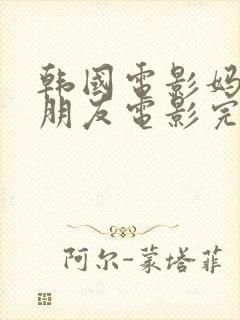 韩國電影妈
朋友電影完
阿尔-蒙塔菲